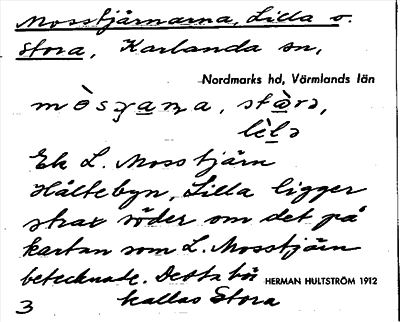 Mosstjärnarna, Lilla o.
Stora, Karlanda sn,
Nordmarks hd, Värmlands län
stàrə,
lèlə
Ek L. Mosstjärn
Håltebyn. Lilla ligger
strax söder om det på
kartan som L. Mosstjärn
betecknade. Detta bör
HERMAN HULTSTRÖM 1912
kallas Stora
3